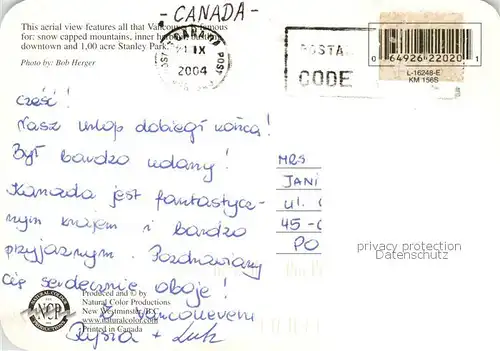 - CANADA -
This aerial view features all that Vancouver is famous
for: snow capped mountains, inner harbour,
downtown and 1,00 acre Stanley Park.
Photo by: Bob Herger
CANADA
IX
2004
POSTAL
CODE
0 64926 22020 1
L-16248-E
KM 156S
cześć!
Nasz urlop dobiegł końca!
Był bardzo udany!
Kanada jest fantastycz-
nym krajem i bardzo
przyjaznym. Pozdrawiamy
Cię serdecznie oboje!
Z Vancouveru
+
MRS
JANI
ul.
45-
PO
privacy protection
Datenschutz
NATURAL COLOR
NCP
PRODUCTIONS
Produced and © by
Natural Color Productions
New Westminster, B.C.
www.naturalcolor.com
Printed in Canada